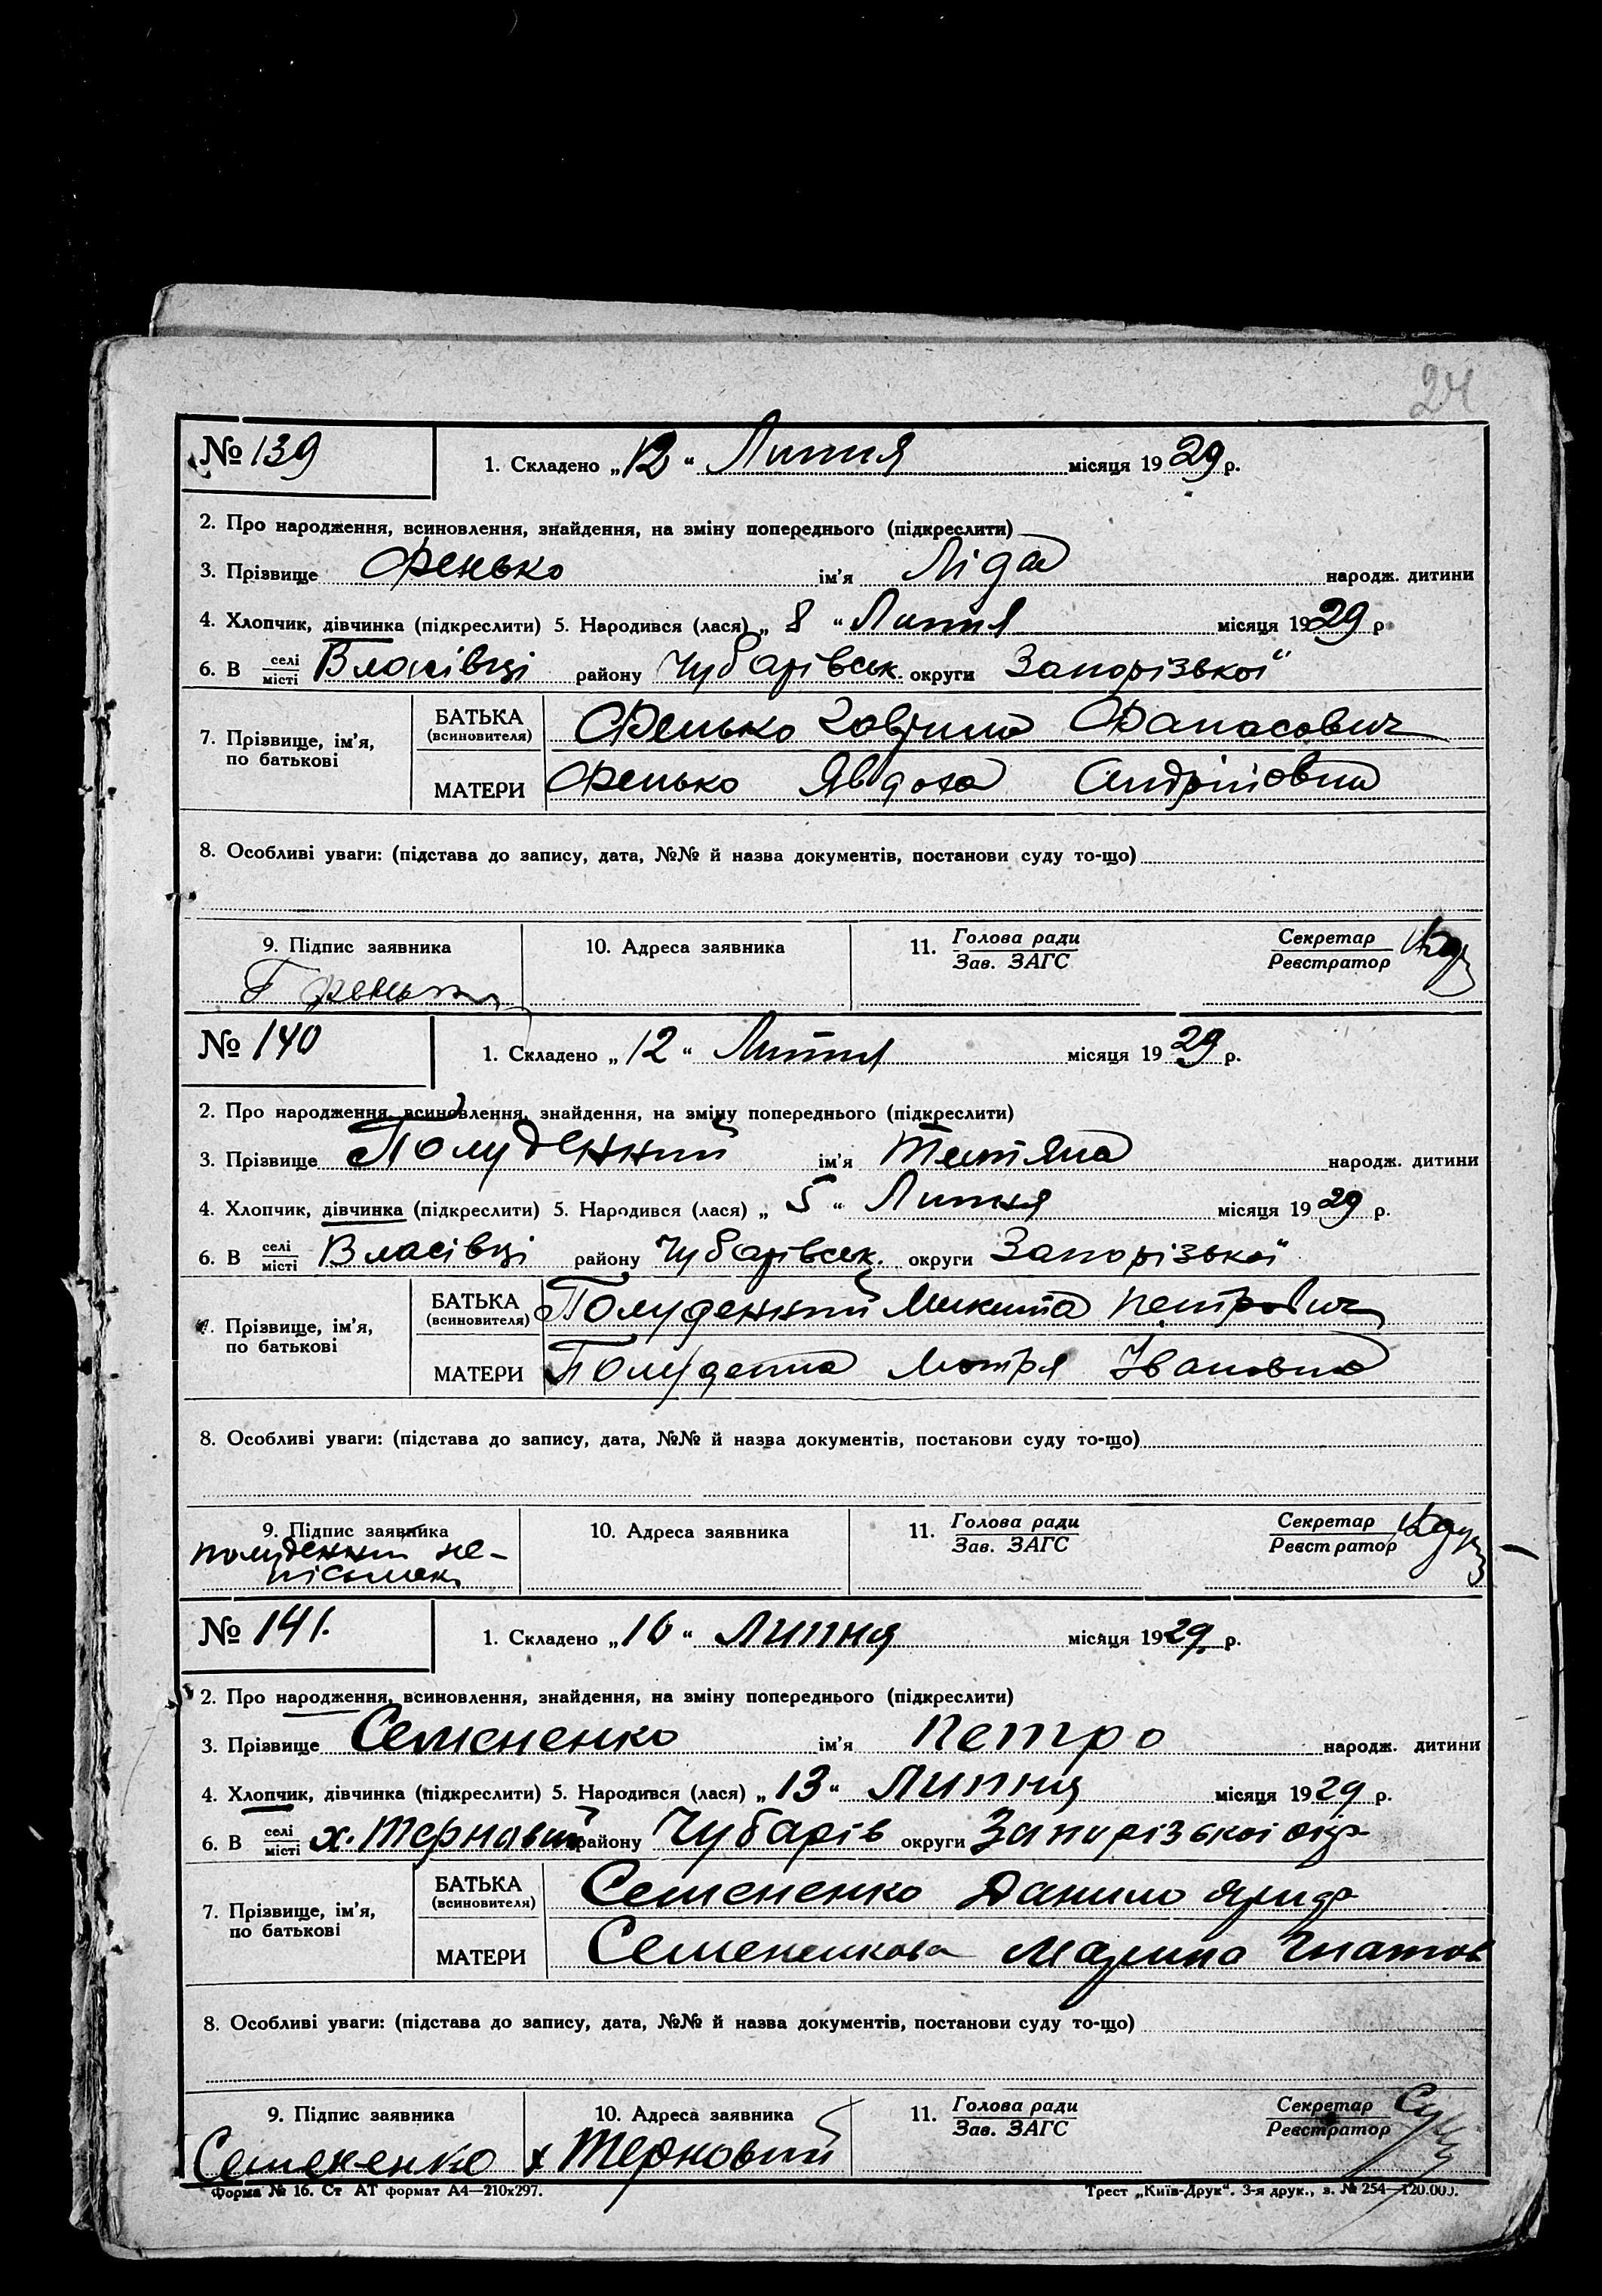 24
№ 139
1. Складено „12“ Липня місяця 1929 р.
2. Про народження, всиновлення, знайдення, на зміну попереднього (підкреслити)
3. Прізвище Фенько ім’я Ліда народж. дитини
4. Хлопчик, дівчинка (підкреслити) 5. Народився (лася) „8“ Липня місяця 1929 р.
6. В селі/місті Власівці району Чубарівськ. округи Запорізької
7. Прізвище, ім’я, по батькові
БАТЬКА (всиновителя) Фенько Гаврило Фанасович
МАТЕРИ Фенько Явдоха Андріівна
8. Особливі уваги: (підстава до запису, дата, №№ й назва документів, постанови суду то-що)
9. Підпис заявника 10. Адреса заявника 11. Голова ради/Зав. ЗАГС Секретар/Реєстратор
Г Фенько
№ 140
1. Складено „12“ Липня місяця 1929 р.
2. Про народження, всиновлення, знайдення, на зміну попереднього (підкреслити)
3. Прізвище Полуденний ім’я Тетяна народж. дитини
4. Хлопчик, дівчинка (підкреслити) 5. Народився (лася) „5“ Липня місяця 1929 р.
6. В селі/місті Власівці району Чубарівськ. округи Запорізької
7. Прізвище, ім’я, по батькові
БАТЬКА (всиновителя) Полуденний Микита Петрович
МАТЕРИ Полуденна Мотря Івановна
8. Особливі уваги: (підстава до запису, дата, №№ й назва документів, постанови суду то-що)
9. Підпис заявника 10. Адреса заявника 11. Голова ради/Зав. ЗАГС Секретар/Реєстратор
Полуденний не-
пісьмен.
№ 141.
1. Складено „16“ Липня місяця 1929. р.
2. Про народження, всиновлення, знайдення, на зміну попереднього (підкреслити)
3. Прізвище Семененко ім’я Петро народж. дитини
4. Хлопчик, дівчинка (підкреслити) 5. Народився (лася) „13“ Липня місяця 1929 р.
6. В селі/місті х. Терновий району Чубарів округи Запорізької окр
7. Прізвище, ім’я, по батькові
БАТЬКА (всиновителя) Семененко Данило
МАТЕРИ Семененкова Марина Гнатов
8. Особливі уваги: (підстава до запису, дата, №№ й назва документів, постанови суду то-що)
9. Підпис заявника 10. Адреса заявника 11. Голова ради/Зав. ЗАГС Секретар/Реєстратор
Семененко х Терновий
Форма № 16. Ст АТ формат А4—210х297. Трест „Київ-Друк“. 3-я друк., з. № 254—120.000.